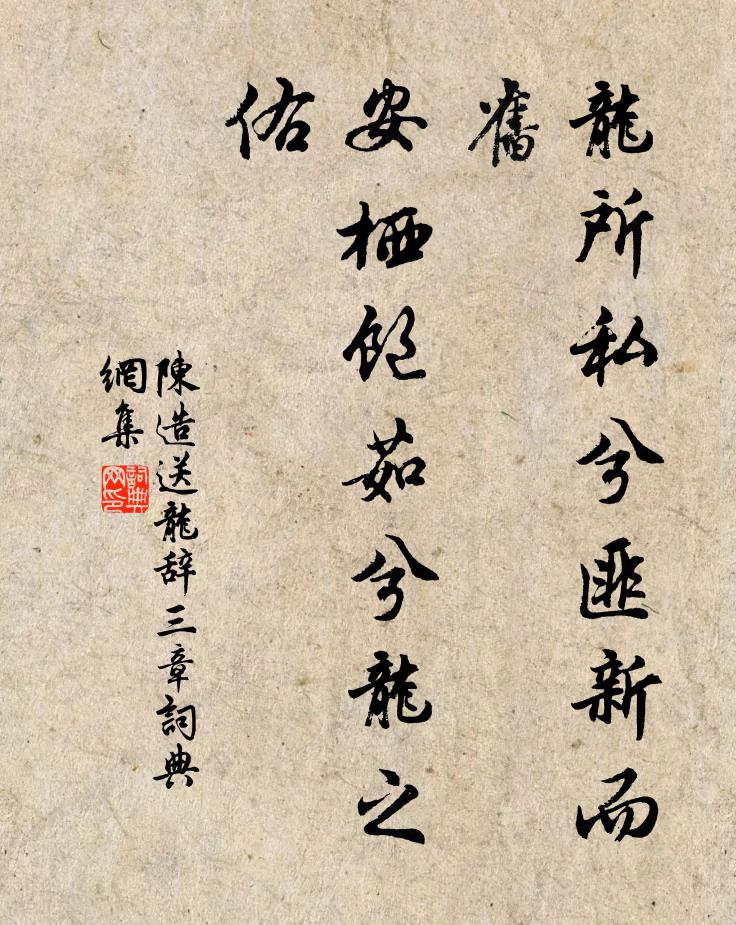 龍所私兮匪新而
舊
安栖飽茹兮龍之
佑
陳造送龍辞三章詞典
網集
詞典
网印